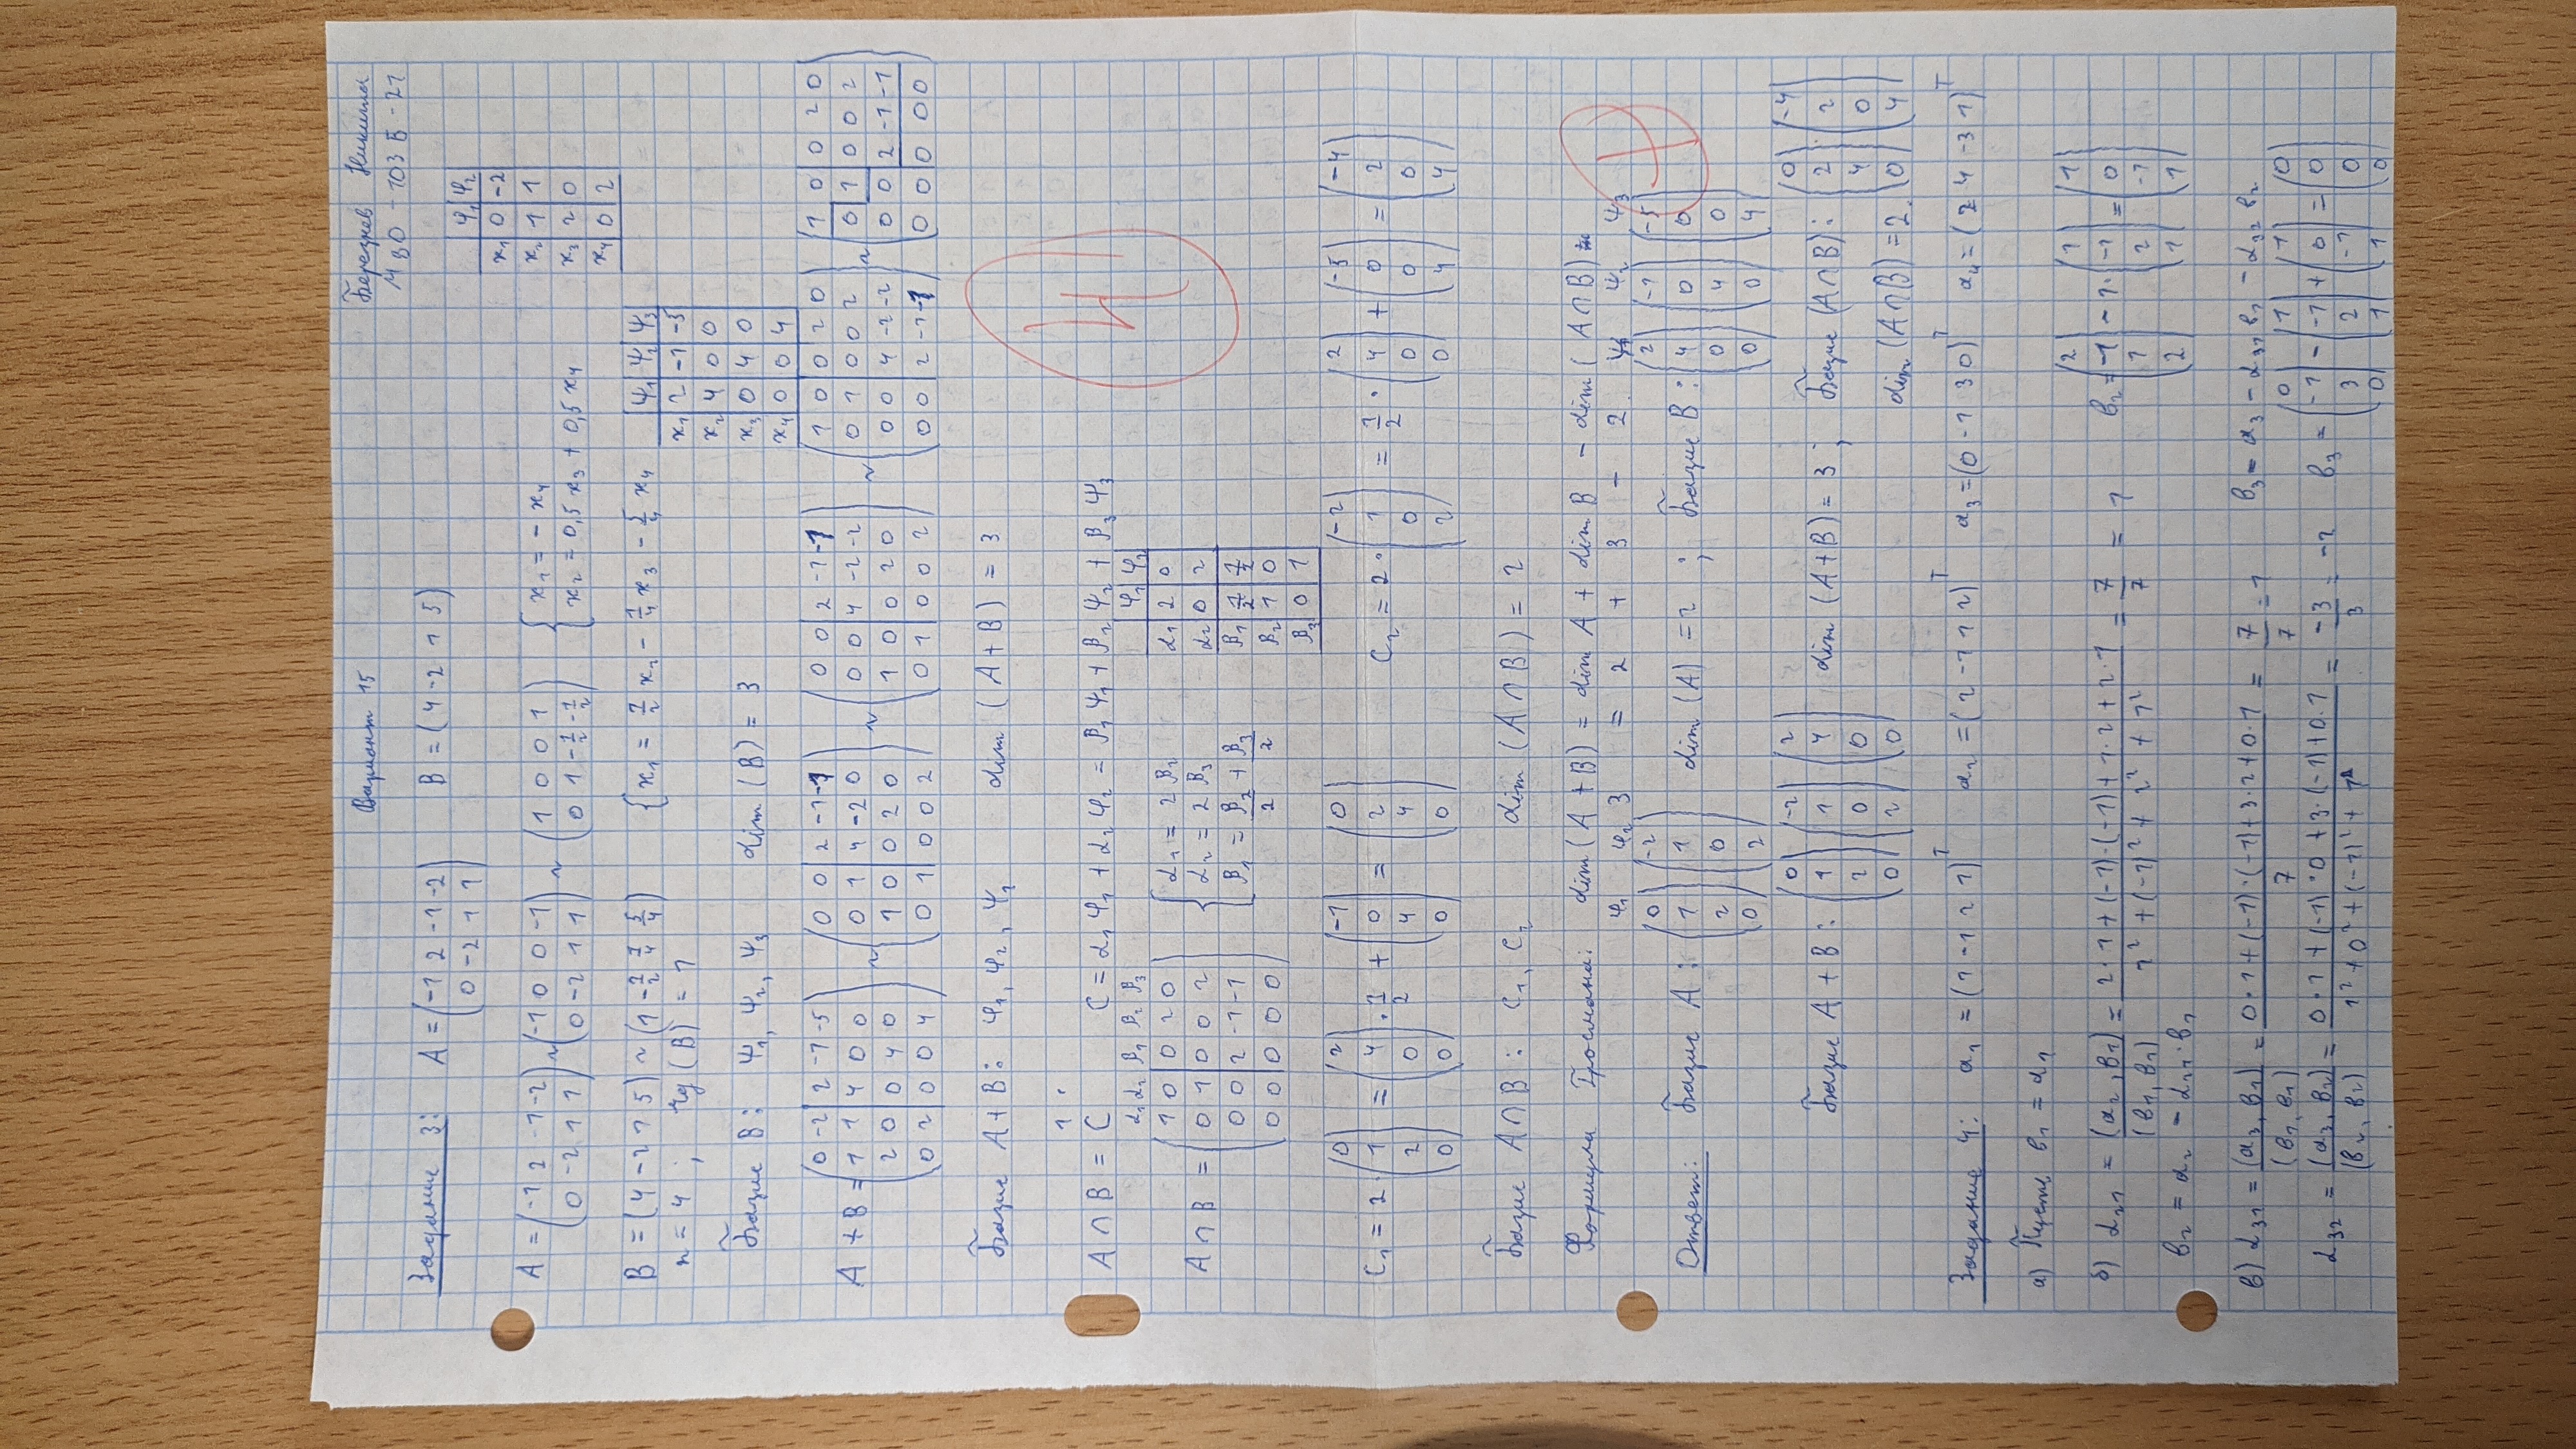 Вариант 15
Березнев Никита
М8О-103Б-21
Задание 3: A = (-1 2 -1 -2; 0 -2 1 1) B = (4 -2 1 5)
φ₁ φ₂
x₁ 0 -2
x₂ 1 1
x₃ 2 0
x₄ 0 2
A = (-1 2 -1 -2; 0 -2 1 1) ~ (-1 0 0 -1; 0 -2 1 1) ~ (1 0 0 1; 0 1 -1/2 -1/2) { x₁ = -x₄
x₂ = 0,5x₃ + 0,5x₄
B = (4 -2 1 5) ~ (1 -1/2 1/4 5/4) { x₁ = 1/2 x₂ - 1/4 x₃ - 5/4 x₄
n = 4 ; rg(B) = 1
ψ₁ ψ₂ ψ₃
x₁ 2 -1 -5
x₂ 4 0 0
x₃ 0 4 0
x₄ 0 0 4
Базис B: ψ₁, ψ₂, ψ₃ dim(B) = 3
A+B = (0 -2 | 2 -1 -5; 1 1 | 4 0 0; 2 0 | 0 4 0; 0 2 | 0 0 4) ~ (0 0 | 2 -1 -1; 0 1 | 4 -2 0; 1 0 | 0 2 0; 0 1 | 0 0 2) ~ (0 0 | 2 -1 -1; 0 0 | 4 -2 -2; 1 0 | 0 2 0; 0 1 | 0 0 2) ~ (1 0 | 0 2 0; 0 1 | 0 0 2; 0 0 | 4 -2 -2; 0 0 | 2 -1 -1) ~ (1 0 0 2 0; 0 1 0 0 2; 0 0 2 -1 -1; 0 0 0 0 0)
Базис A+B: φ₁, φ₂, ψ₁ dim(A+B) = 3
A∩B = C C = α₁φ₁ + α₂φ₂ = β₁ψ₁ + β₂ψ₂ + β₃ψ₃
α₁ α₂ β₁ β₂ β₃
A∩B = (1 0 | 0 2 0; 0 1 | 0 0 2; 0 0 | 2 -1 -1; 0 0 | 0 0 0) { α₁ = 2β₂
α₂ = 2β₃
β₁ = β₂/2 + β₃/2
φ₁ φ₂
α₁ 2 0
α₂ 0 2
β₁ 1/2 1/2
β₂ 1 0
β₃ 0 1
C₁ = 2·(0; 1; 2; 0) = (2; 4; 0; 0)·1/2 + (-1; 0; 4; 0) = (0; 2; 4; 0) C₂ = 2·(-2; 1; 0; 2) = 1/2·(2; 4; 0; 0) + (-5; 0; 0; 4) = (-4; 2; 0; 4)
Базис A∩B: C₁, C₂ dim(A∩B) = 2
Формула Гросмана: dim(A+B) = dim A + dim B - dim(A∩B)
3 = 2 + 3 - 2
φ₁ φ₂ ψ₁ ψ₂ ψ₃
Ответ: Базис A: (0; 1; 2; 0) (-2; 1; 0; 2) dim(A) = 2 ; Базис B: (2; 4; 0; 0) (-1; 0; 4; 0) (-5; 0; 0; 4)
Базис A+B: (0; 1; 2; 0) (-2; 1; 0; 2) (2; 4; 0; 0) dim(A+B) = 3; Базис (A∩B): (0; 2; 4; 0) (-4; 2; 0; 4)
dim(A∩B) = 2.
Задание 4: a₁ = (1 -1 2 1)ᵀ a₂ = (2 -1 1 2)ᵀ a₃ = (0 -1 3 0)ᵀ a₄ = (2 4 -3 1)ᵀ
а) Пусть b₁ = a₁
б) α₂₁ = (a₂, b₁)/(b₁, b₁) = (2·1 + (-1)·(-1) + 1·2 + 2·1)/(1² + (-1)² + 2² + 1²) = 7/7 = 1 b₂ = (2; -1; 1; 2) - 1·(1; -1; 2; 1) = (1; 0; -1; 1)
b₂ = a₂ - α₂₁·b₁
в) α₃₁ = (a₃, b₁)/(b₁, b₁) = (0·1 + (-1)·(-1) + 3·2 + 0·1)/7 = 7/7 = 1 b₃ = a₃ - α₃₁b₁ - α₃₂b₂
α₃₂ = (a₃, b₂)/(b₂, b₂) = (0·1 + (-1)·0 + 3·(-1) + 0·1)/(1² + 0² + (-1)² + 1²) = -3/3 = -1 b₃ = (0; -1; 3; 0) - (1; -1; 2; 1) + (1; 0; -1; 1) = (0; 0; 0; 0)